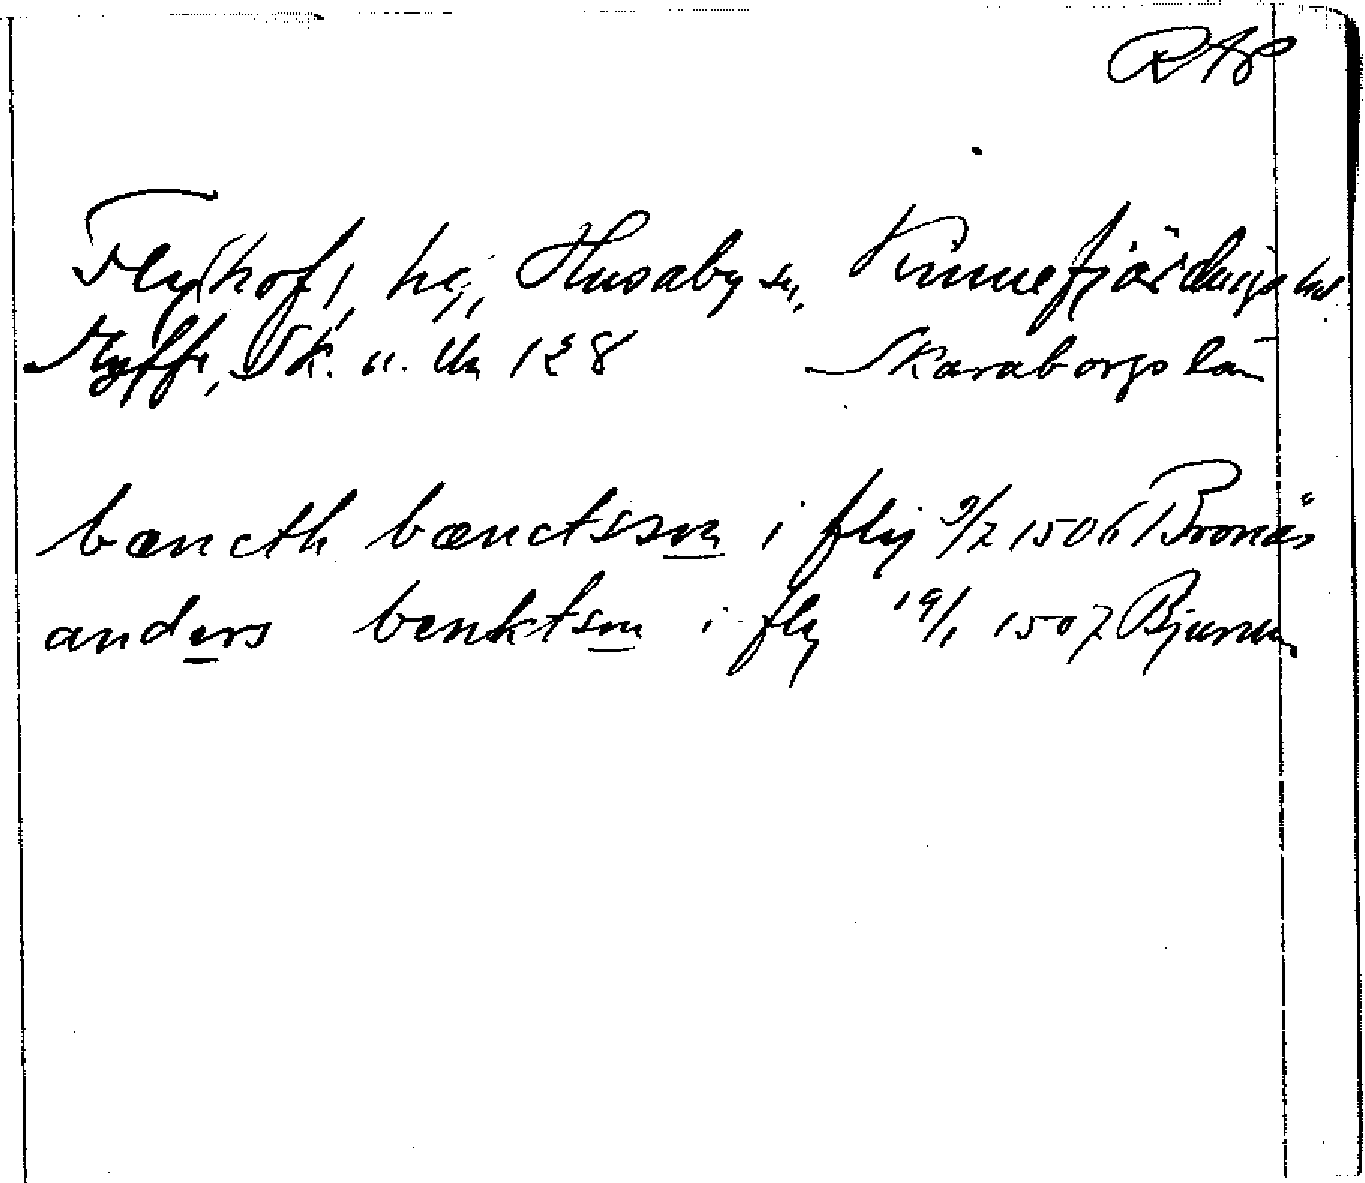 RAP
Fly(hof), hg, Husaby sn, Kinnefjärdings hd.
Styffe, Sk. u. Un 128 Skaraborgs län
bæncth bænctsson i flij 9/2 1506 Bronäs
anders benktson i fly 19/1 1507 Bjurum